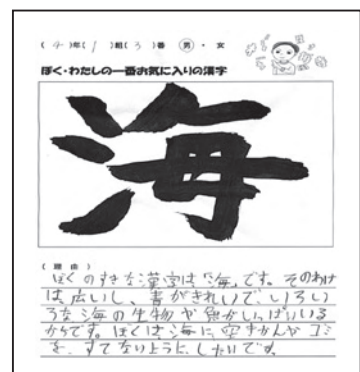 ( 4 )年( 1 )組( 3 )番 男・女
ぼく・わたしの一番お気に入りの漢字
海
( 理由 )
ぼくのすきな漢字は「海」です。そのわけ
は、広いし、青がきれいで、いろい
ろな海の生物や魚がいっぱいいる
からです。ぼくは、海に、空きかんやゴミ
を、すてないようにしたいです。